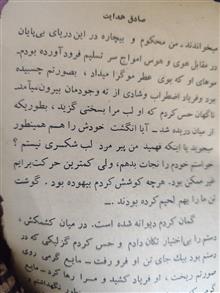 صادق هدایت
میخواندند. من محکوم و بیچاره در این دریای بی‌پایان
در مقابل هوی و هوس امواج سر تسلیم فرود آورده بودم.
موهای او که بوی عطر موگرا میداد، بصورتم چسبیده
بود و فریاد اضطراب و شادی از ته وجودمان بیرون می‌آمد.
ناگهان حس کردم که او لب مرا بسختی گزید، بطوریکه
از میان دریده شد ـ آیا انگشت خودش را هم همینطور
میجوید یا اینکه فهمید من پیر مرد لب شکسری نیستم؟
خواستم خودم را نجات بدهم، ولی کمترین حرکت برایم
غیر ممکن بود. هرچه کوشش کردم بیهوده بود. گوشت
تن ما را بهم لحیم کرده بودند ...
گمان کردم دیوانه شده است. در میان کشمکش،
دستم را بی‌اختیار تکان دادم و حس کردم گزلیکی که در
دستم بود بیک جای تن او فرو رفت ـ مایع گرمی روی
صورتم ریخت، او فریاد کشید و مرا رها کرد ـ مایع